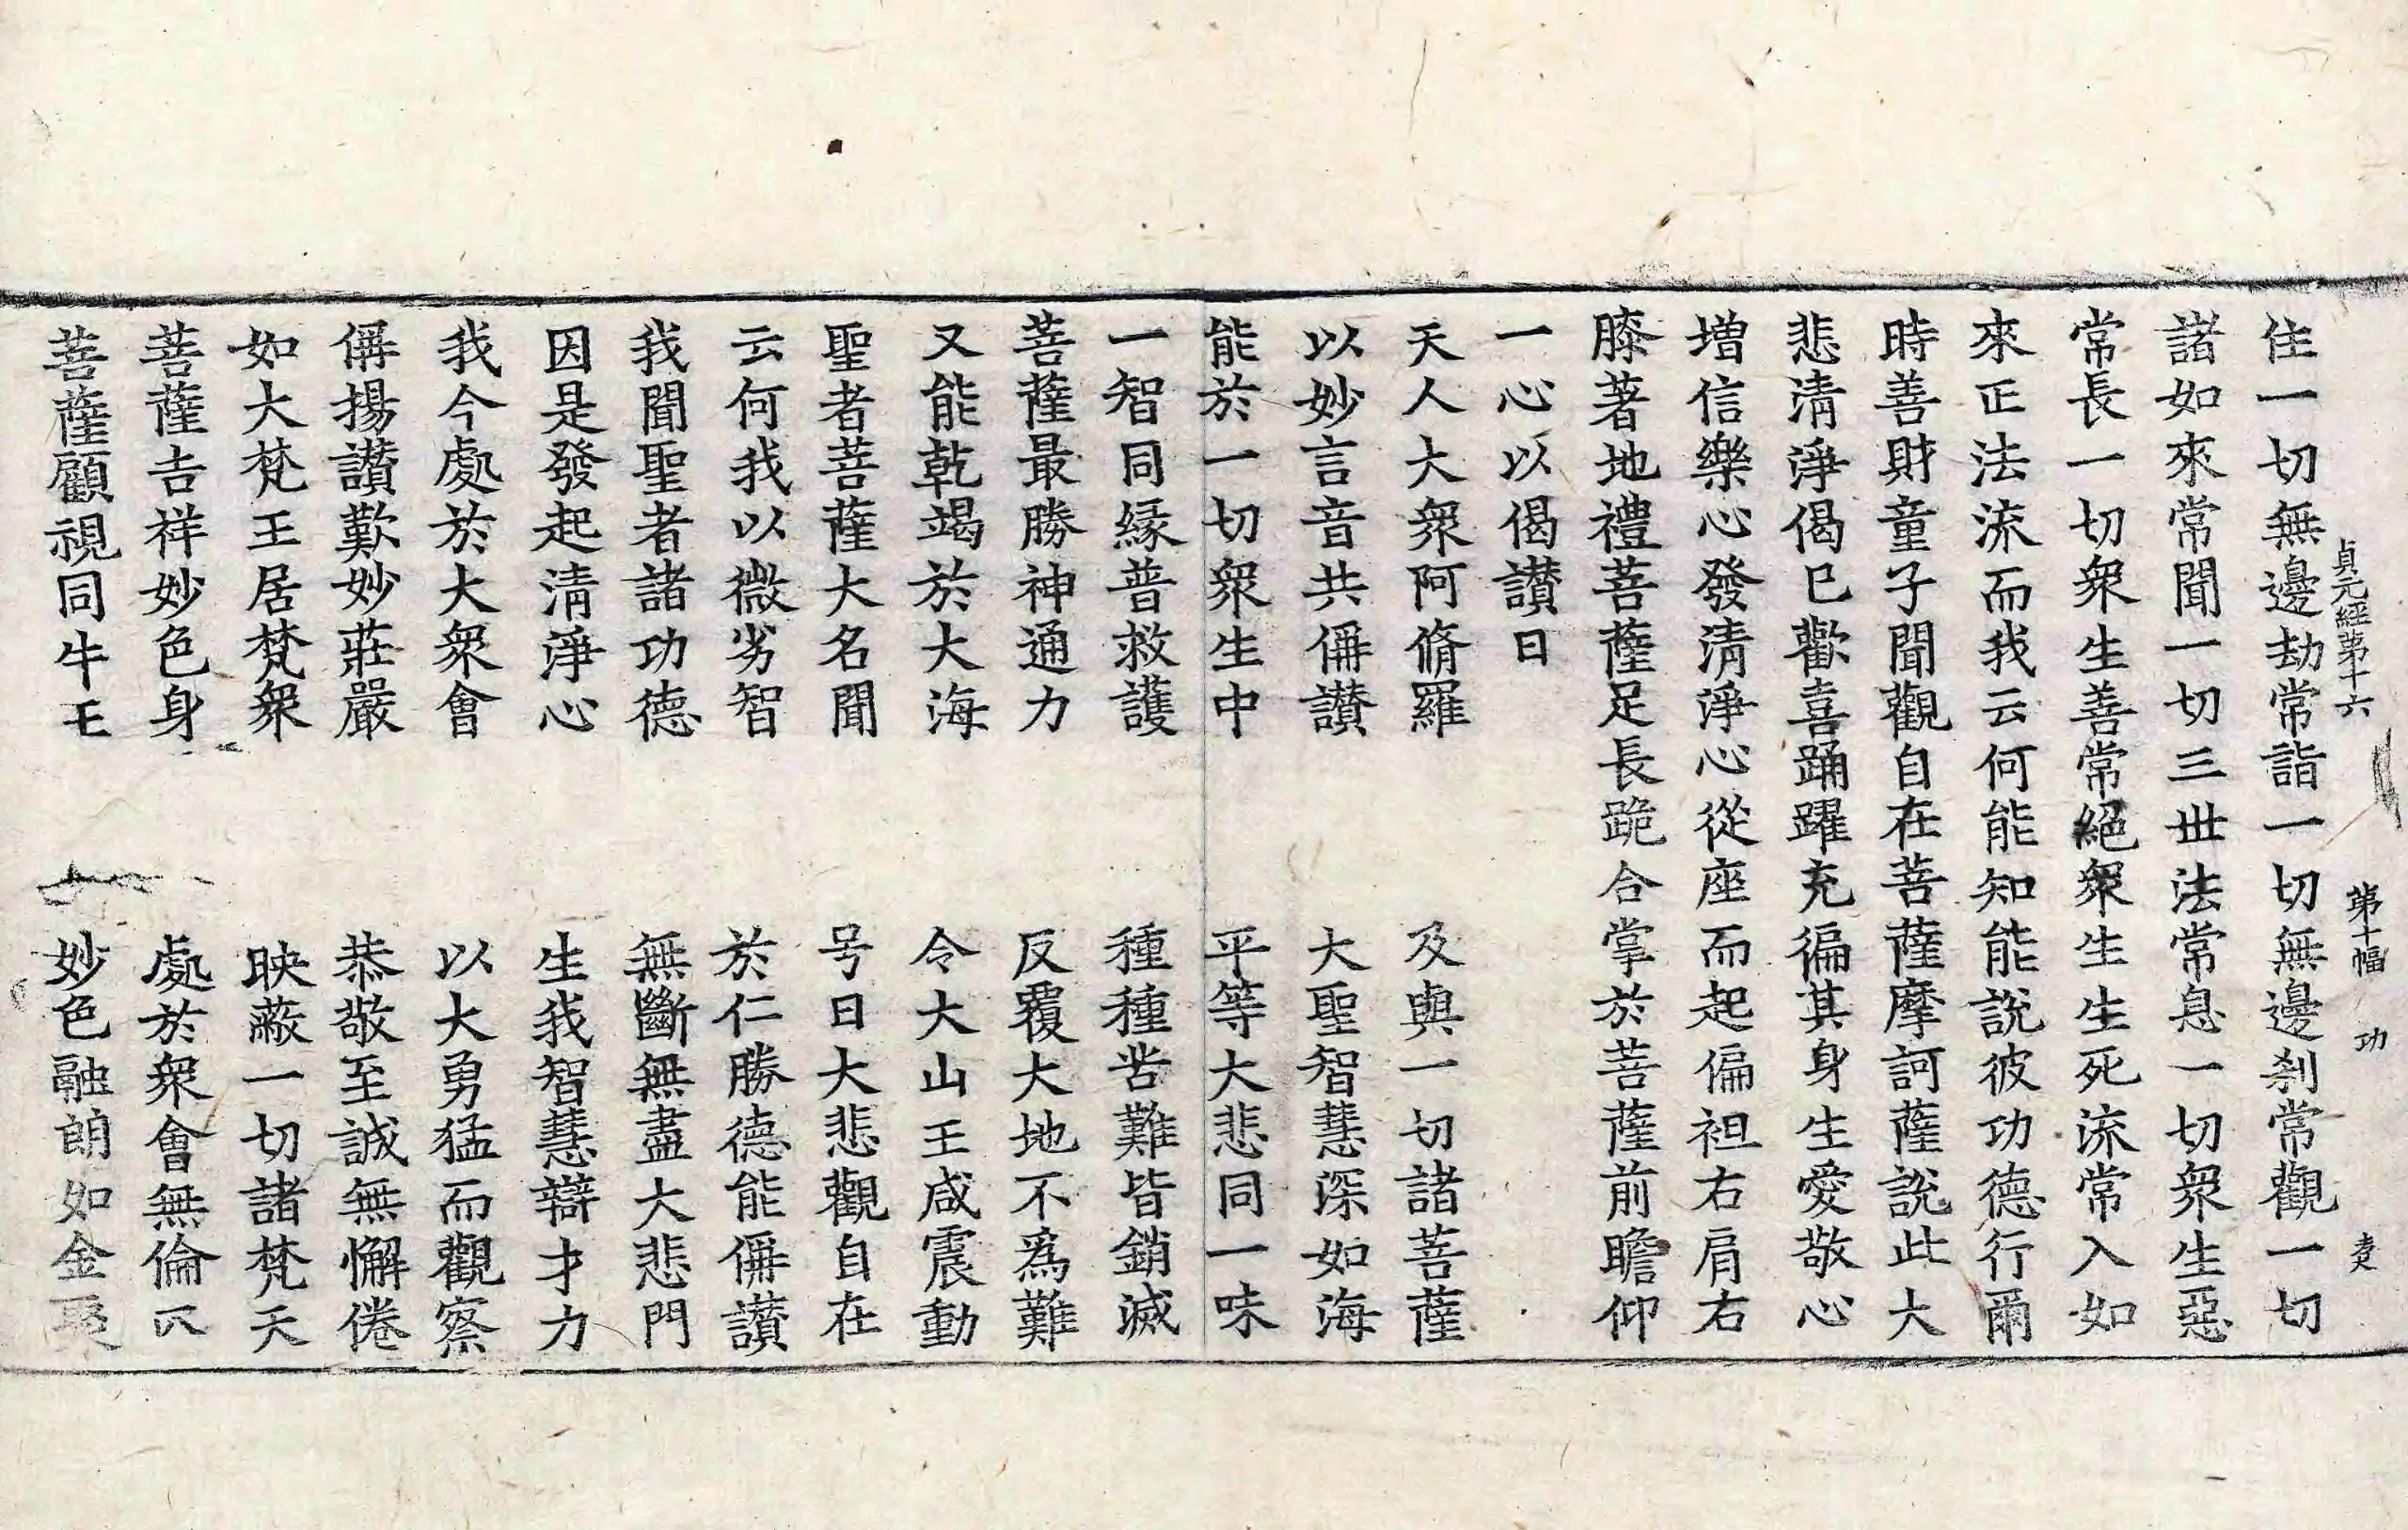 貞元經第十六 第十幅 功
住一切無邊劫常詣一切無邊刹常觀一切
諸如來常聞一切三世法常息一切衆生惡
常長一切衆生善常絕衆生生死流常入如
來正法流而我云何能知能說彼功德行爾
時善財童子聞觀自在菩薩摩訶薩說此大
悲清淨偈已歡喜踊躍充徧其身生愛敬心
增信樂心發清淨心從座而起偏袒右肩右
膝著地禮菩薩足長跪合掌於菩薩前瞻仰
一心以偈讃曰
天人大衆阿脩羅 及與一切諸菩薩
以妙言音共偁讃 大聖智慧深如海
能於一切衆生中 平等大悲同一味
一智同緣普救護 種種苦難皆銷滅
菩薩最勝神通力 反覆大地不爲難
又能乾竭於大海 令大山王咸震動
聖者菩薩大名聞 号曰大悲觀自在
云何我以微劣智 於仁勝德能偁讃
我聞聖者諸功德 無斷無盡大悲門
因是發起清淨心 生我智慧辯才力
我今處於大衆會 以大勇猛而觀察
偁揚讃歎妙莊嚴 恭敬至誠無懈倦
如大梵王居梵衆 映蔽一切諸梵天
菩薩吉祥妙色身 處於衆會無倫匹
菩薩顧視同牛王 妙色融朗如金聚